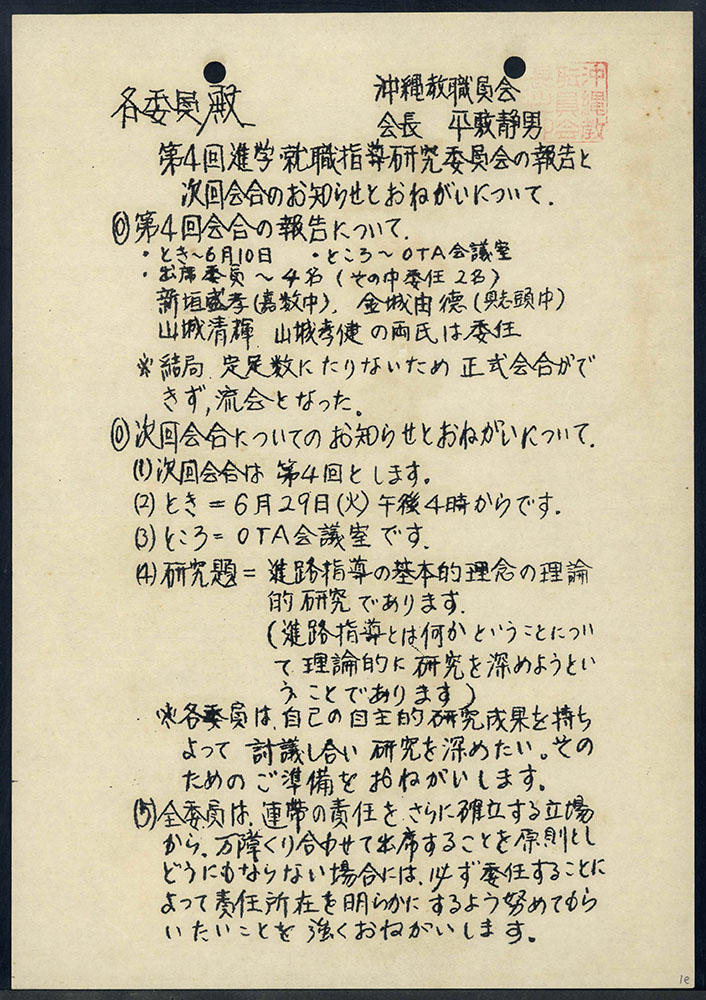 各委員殿
沖縄教職員会
会長 平敷静男
第4回進学就職指導研究委員会の報告と
次回会合のお知らせとおねがいについて.
◎第4回会合の報告について.
・とき〜6月10日 ・ところ〜OTA会議室
・出席委員〜4名(その中委任2名)
新垣盛孝(嘉数中), 金城由德(具志頭中)
山城清輝 山城孝健の両氏は委任
※結局、定足数にたりないため正式会合がで
きず,流会となった。
◎次回会合についてのお知らせとおねがいについて.
(1)次回会合は第4回とします。
(2)とき=6月29日(火)午後4時からです.
(3)ところ=OTA会議室です.
(4)研究題=進路指導の基本的理念の理論
的研究であります.
(進路指導とは何かということについ
て理論的に研究を深めようとい
うことであります)
※各委員は、自己の自主的研究成果を持ち
よって討議し合い研究を深めたい。その
ためのご準備をおねがいします。
(5)全委員は、連帯の責任をさらに確立する立場
から、万障くり合わせて出席することを原則とし
どうにもならない場合には、必ず委任することに
よって責任所在を明らかにするよう努めてもら
いたいことを強くおねがいします。
1e